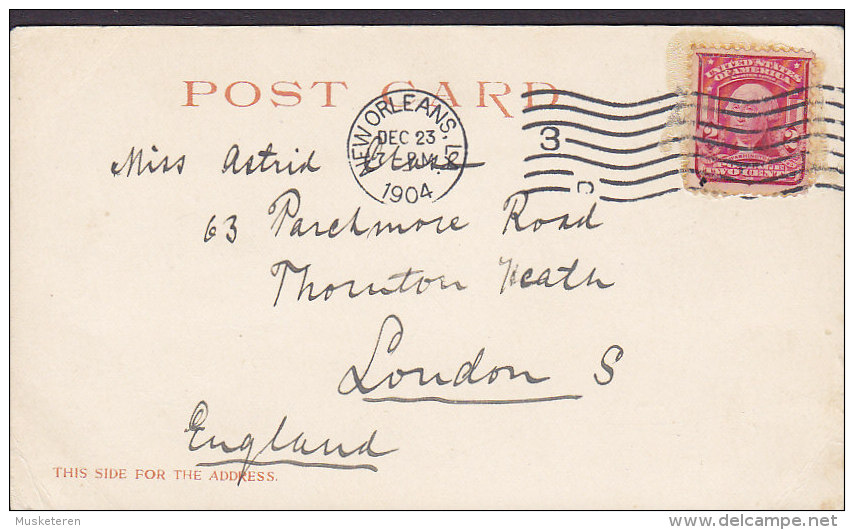 POST CARD
NEW ORLEANS, LA
DEC 23
1904
3
D
UNITED STATES
OF AMERICA
2 2
WASHINGTON
POSTAGE
TWO CENTS
Miss Astrid
63 Parchmore Road
Thornton Heath
London S
England
THIS SIDE FOR THE ADDRESS.
Musketeren
delcampe.net